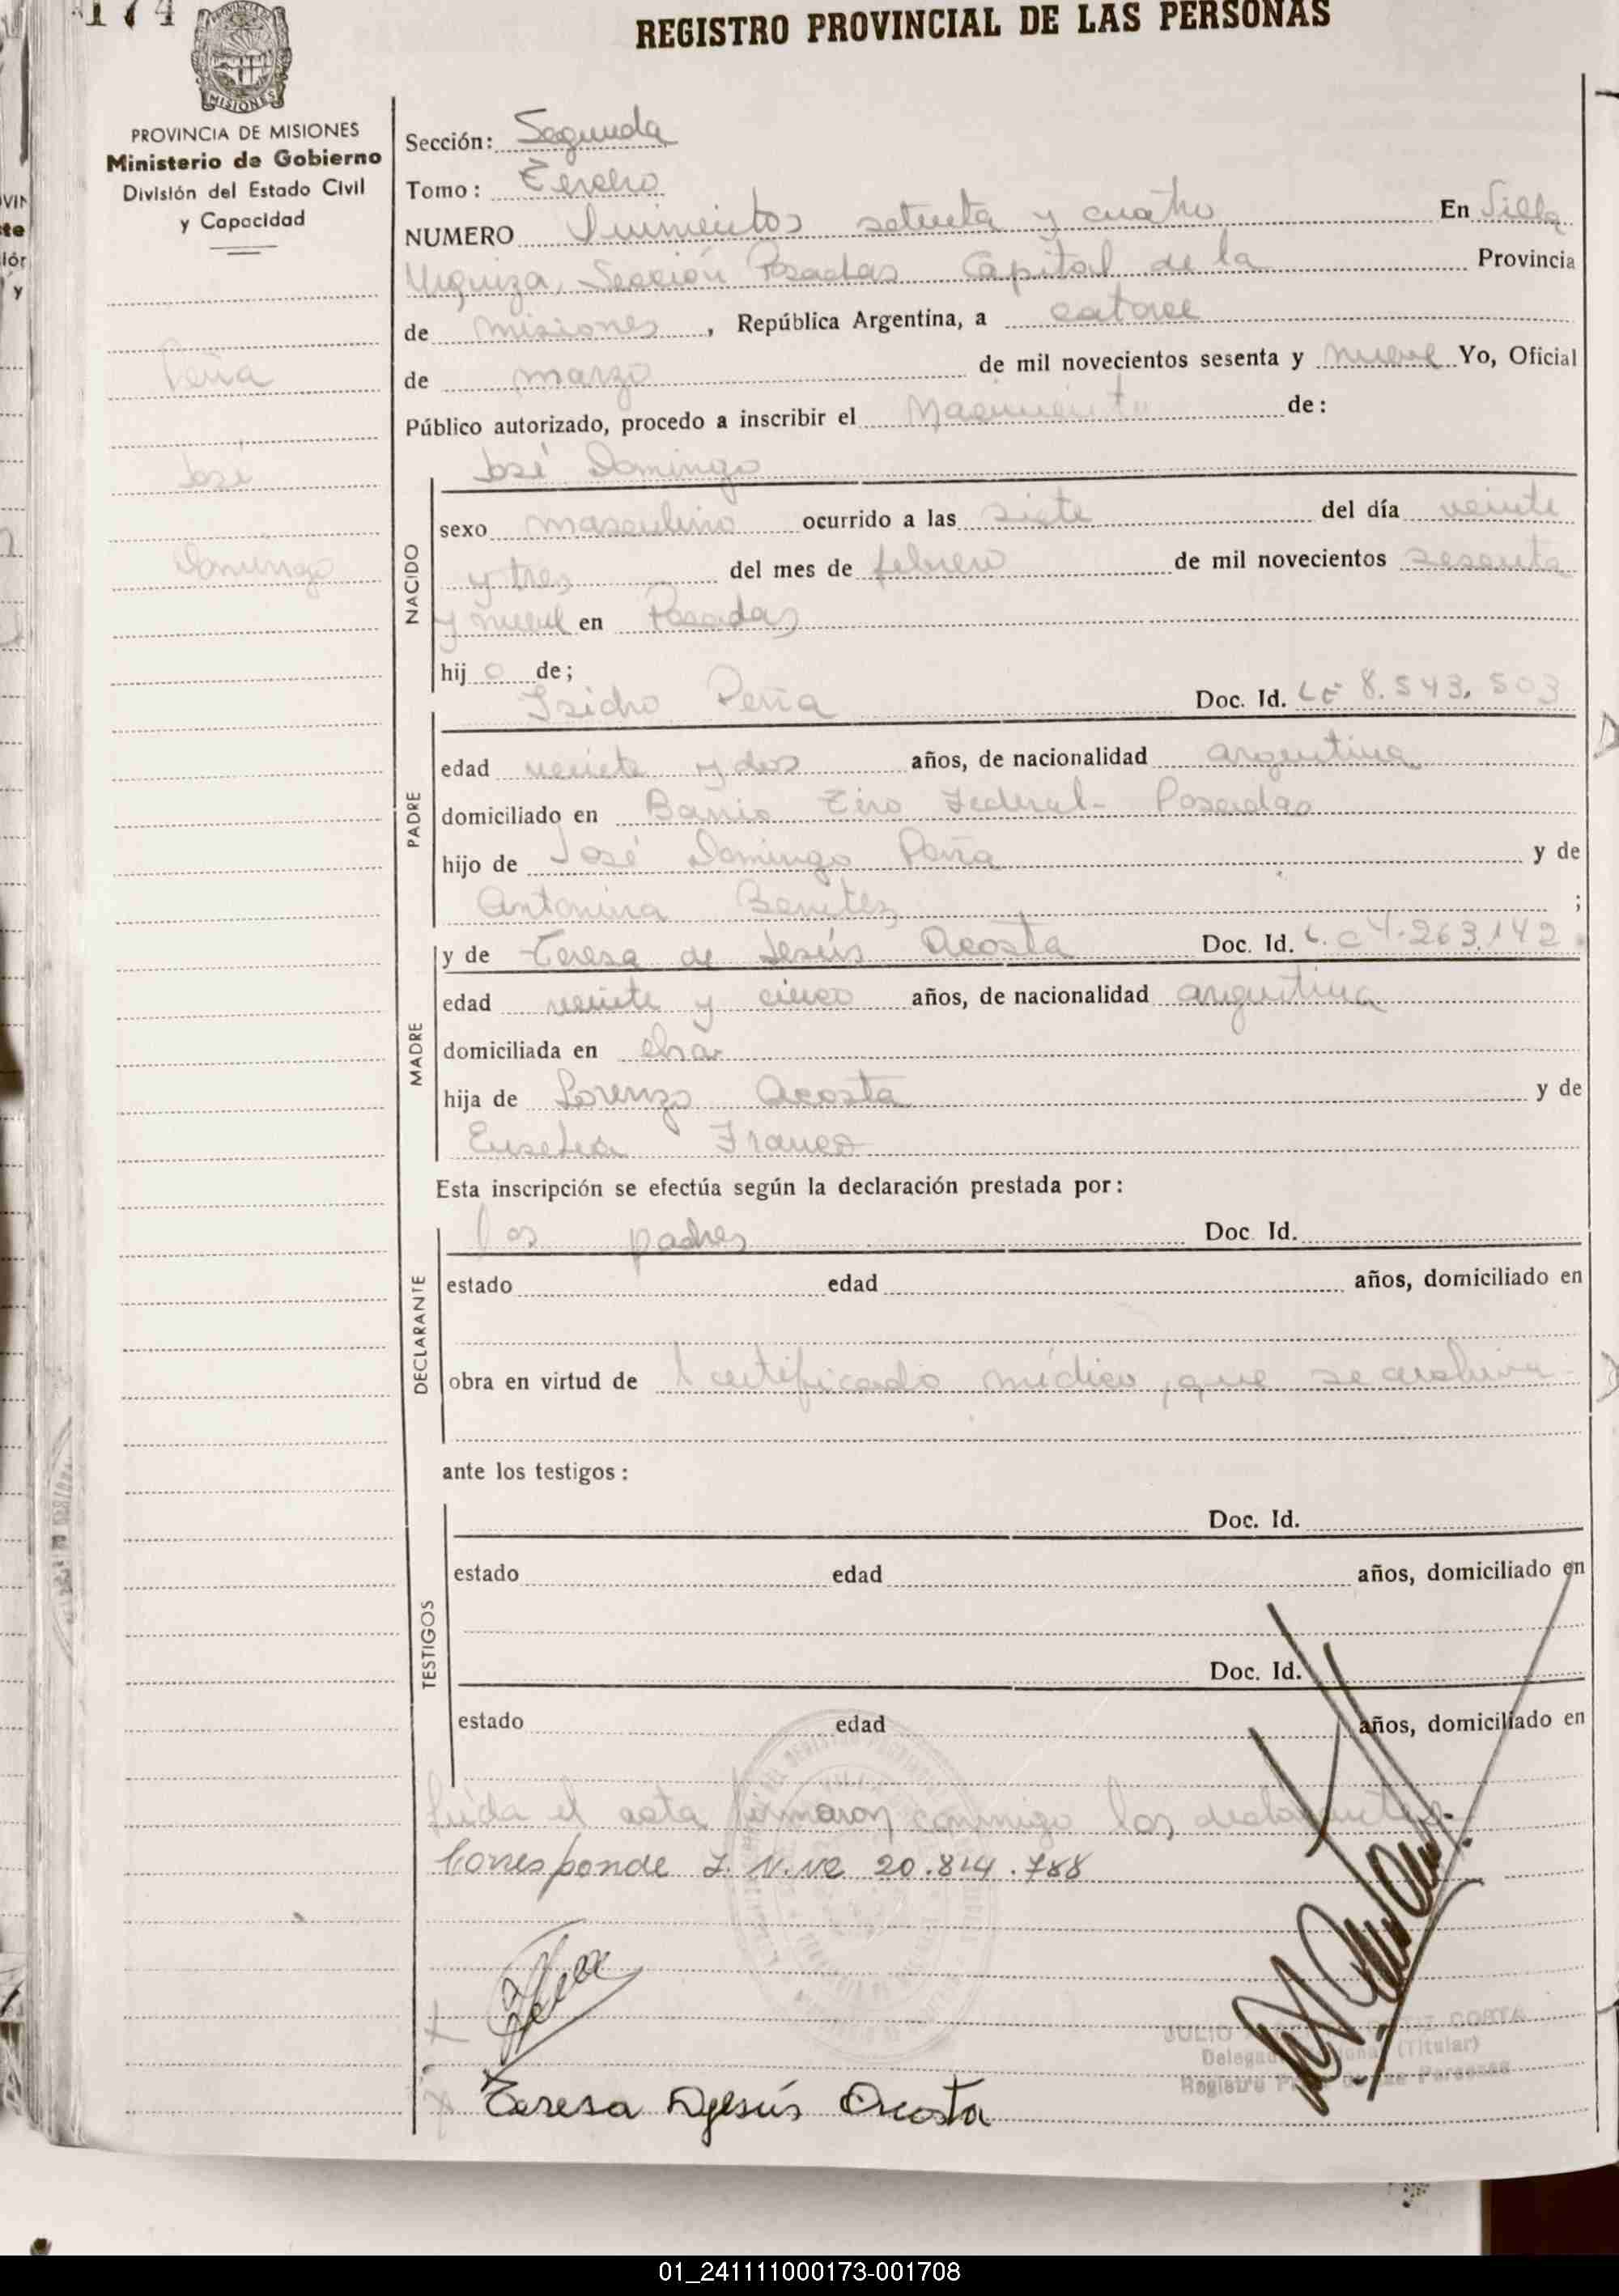 174
REGISTRO PROVINCIAL DE LAS PERSONAS
MISIONES
PROVINCIA DE MISIONES
Ministerio de Gobierno
División del Estado Civil
y Capacidad
Peña
José
Domingo
Sección: Segunda
Tomo: Tercero
NUMERO Quinientos setenta y cuatro En Villa
Urquiza, Sección Posadas Capital de la Provincia
de misiones, República Argentina, a catorce
de marzo de mil novecientos sesenta y nueve Yo, Oficial
Público autorizado, procedo a inscribir el Nacimiento de:
José Domingo
NACIDO
sexo masculino ocurrido a las siete del día veinte
y tres del mes de febrero de mil novecientos sesenta
y nueve en Posadas
hijo de;
Isidro Peña Doc. Id. LE 8.543.503
PADRE
edad veinte y dos años, de nacionalidad argentina
domiciliado en Barrio Tiro Federal - Posadas
hijo de José Domingo Peña y de
Antonina Benítez ;
MADRE
y de Teresa de Jesús Acosta Doc. Id. L.C 4.263.142
edad veinte y cinco años, de nacionalidad argentina
domiciliada en
hija de Lorenzo Acosta y de
Eusebia Franco
Esta inscripción se efectúa según la declaración prestada por:
DECLARANTE
los padres Doc Id.
estado edad años, domiciliado en
obra en virtud de certificado médico, que se archiva
ante los testigos:
TESTIGOS
Doc. Id.
estado edad años, domiciliado en
Doc. Id.
estado edad años, domiciliado en
leída el acta firmaron conmigo los declarantes
Corresponde I. N. Nº 20.814.788
JULIO CORTA
Delegado (Titular)
Registro Personas
Teresa DJesús Acosta
01_241111000173-001708